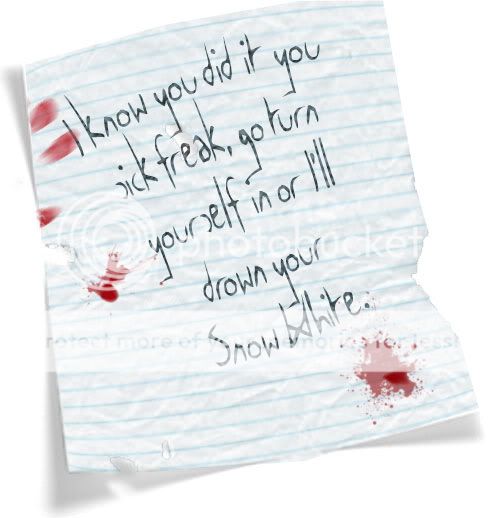 I know you did it you
sick freak, go turn
yourself in or I'll
drown your
Snow White.
photobucket
Protect more of your memories for less!